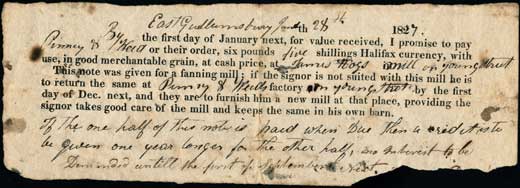 East Gwillimsbury June th 28th 1827.
By the first day of January next, for value received, I promise to pay
Pinney & Weid or their order, six pounds five shillings Halifax currency, with
use, in good merchantable grain, at cash price, at James Hogs mill on young street
This note was given for a fanning mill; if the signor is not suited with this mill he is
to return the same at Pinney & factory on young street by the first
day of Dec. next, and they are to furnish him a new mill at that place, providing the
signor takes good care of the mill and keeps the same in his own barn.
If the one half of this note is paid when Due then a credit is to
be given one year longer for the other half, no interest to be
Demanded untill the first of september next